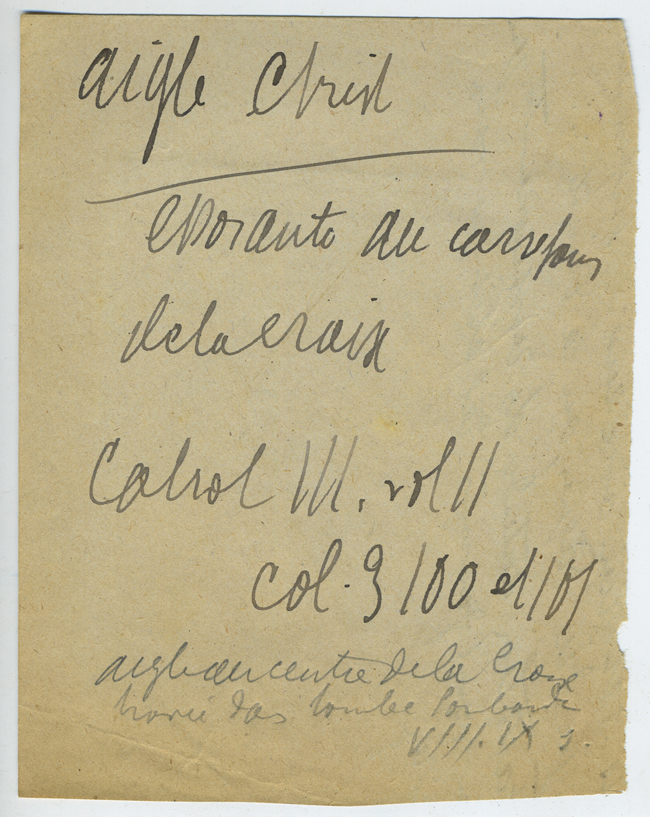 aigle Christ
essorante au carrefour
de la croix
Cabrol III. vol II
col. 3100 et 101
aigle au centre de la Croix
trouvé ds tombe lombarde
VIII. IX s.